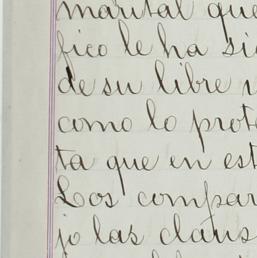 marital que
fico le ha si
de su libre
como lo prot
ta que en est
Los compar
jo las claus